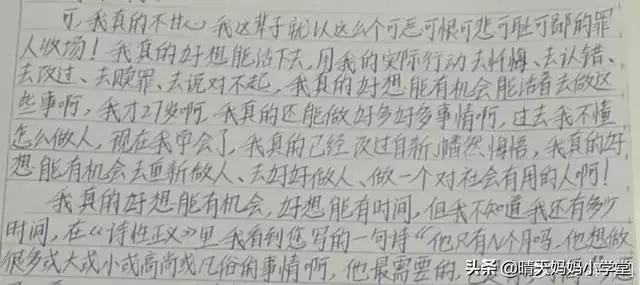 可,我真的不甘心我这辈子就以这么个可恶可恨可悲可耻可鄙的罪
人收场!我真的好想能活下去,用我的实际行动去忏悔、去认错、
去改过、去赎罪、去说对不起,我真的好想能有机会能活着去做这
些事啊,我才27岁啊,我真的还能做好多好多事情啊,过去我不懂
怎么做人,现在我学会了,我真的已经改过自新、幡然悔悟,我真的好
想能有机会去重新做人、去好好做人、做一个对社会有用的人啊!
我真的好想能有机会,好想能有时间,但我不知道我还有多少
时间,在《诗性正义》里我看到您写的一句诗“他只有N个月吗,他想做
很多或大或小或高尚或凡俗的事情啊,他最需要的,
头条 @晴天妈妈小学堂